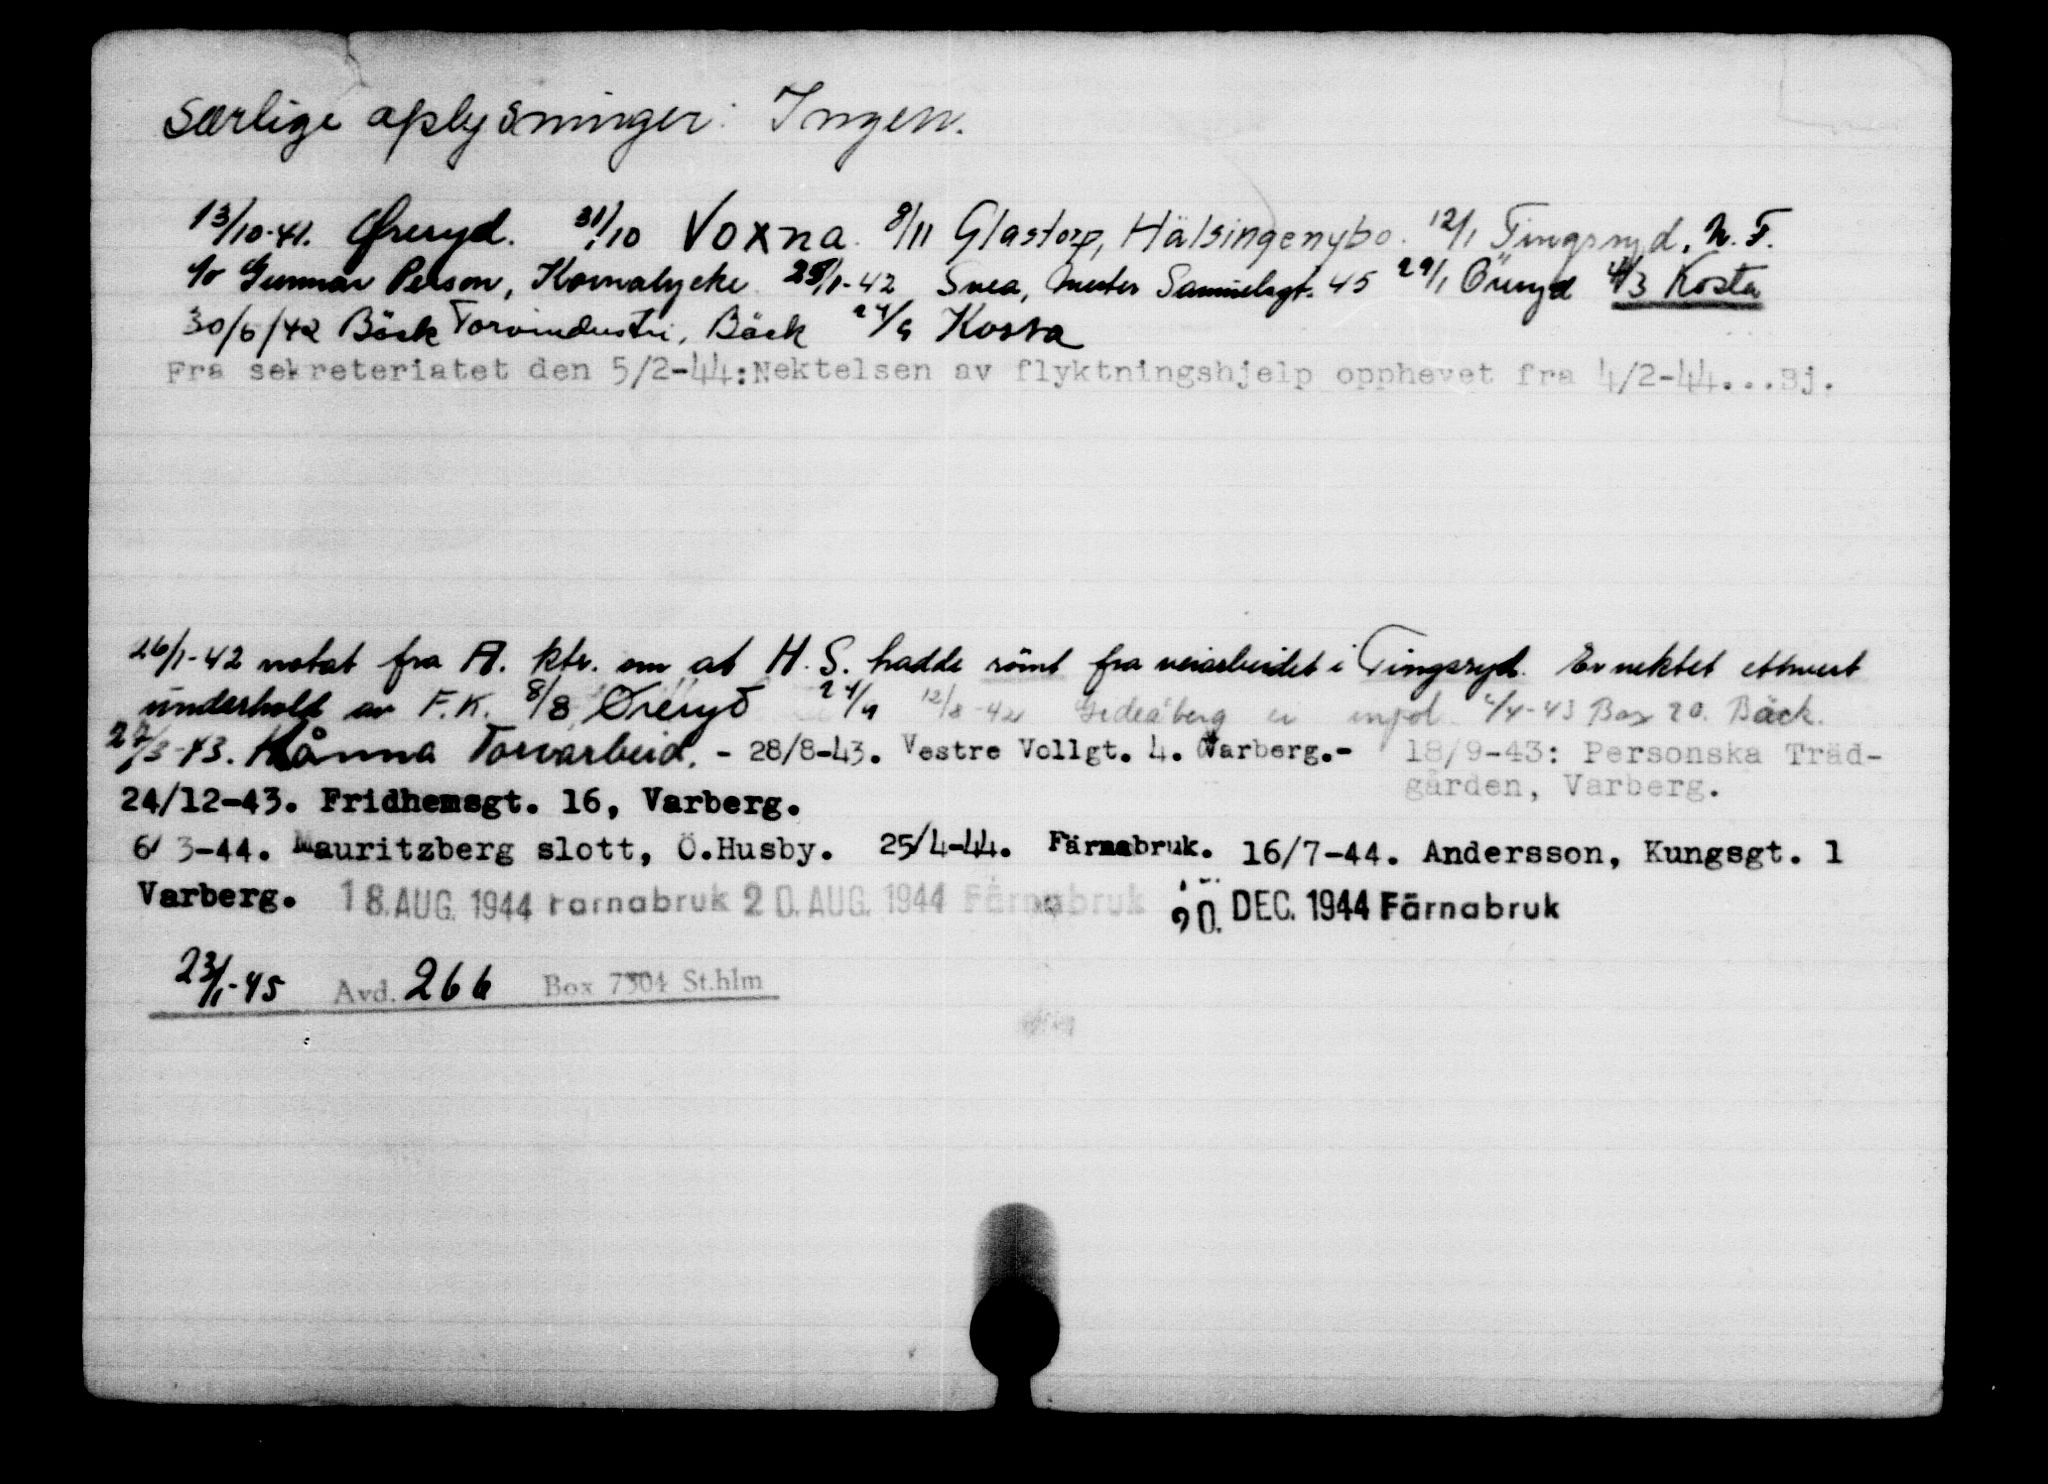 Særlige oplysninger: Ingen.
13/10-41. Øreryd. 31/10 Voxna. 8/11 Glastorp, Hälsingenybo. 12/1 Tingsryd, N. F.
c/o Gunnar Person, Kornalycke 25/1-42 Svea, Mester Samuelsgt. 45 29/1 Öreryd 4/3 Kosta
30/6/42 Bäck Torvindustri, Bäck 24/9 Kosta
Fra sekreteriatet den 5/2-44: Nektelsen av flyktningshjelp opphevet fra 4/2-44...Bj.
26/1-42 notat fra A. ktr. om at H. S. hadde römt fra veiarbeidet i Tingsryd. Er nektet ethvert
underhold av F.K. 8/8 Øreryd 24/9 12/8-42 Gideåberg ei 4-43 Box 20. Bäck.
27/3-43. Hånna Torvarbeid. - 28/8-43. Vestre Vollgt. 4. Varberg.- 18/9-43: Personska Träd-
gården, Varberg.
24/12-43. Fridhemsgt. 16, Varberg.
6/3-44. Mauritzberg slott, Ö.Husby. 25/4-44. Färnabruk. 16/7-44. Andersson, Kungsgt. 1
Varberg. 18. AUG. 1944 Färnabruk 20. AUG. 1944 Färnabruk 20. DEC. 1944 Färnabruk
23/1-45 Avd. 266 Box 7304 St.hlm